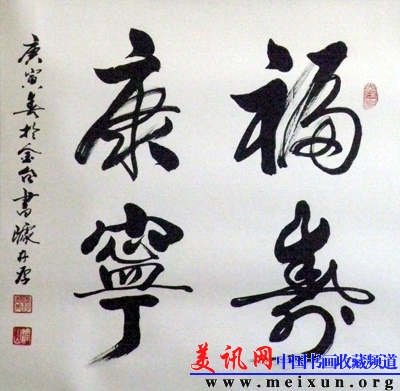 福壽
康寧
庚寅春於金台書
美讯网 中国书画收藏频道
www.meixun.org